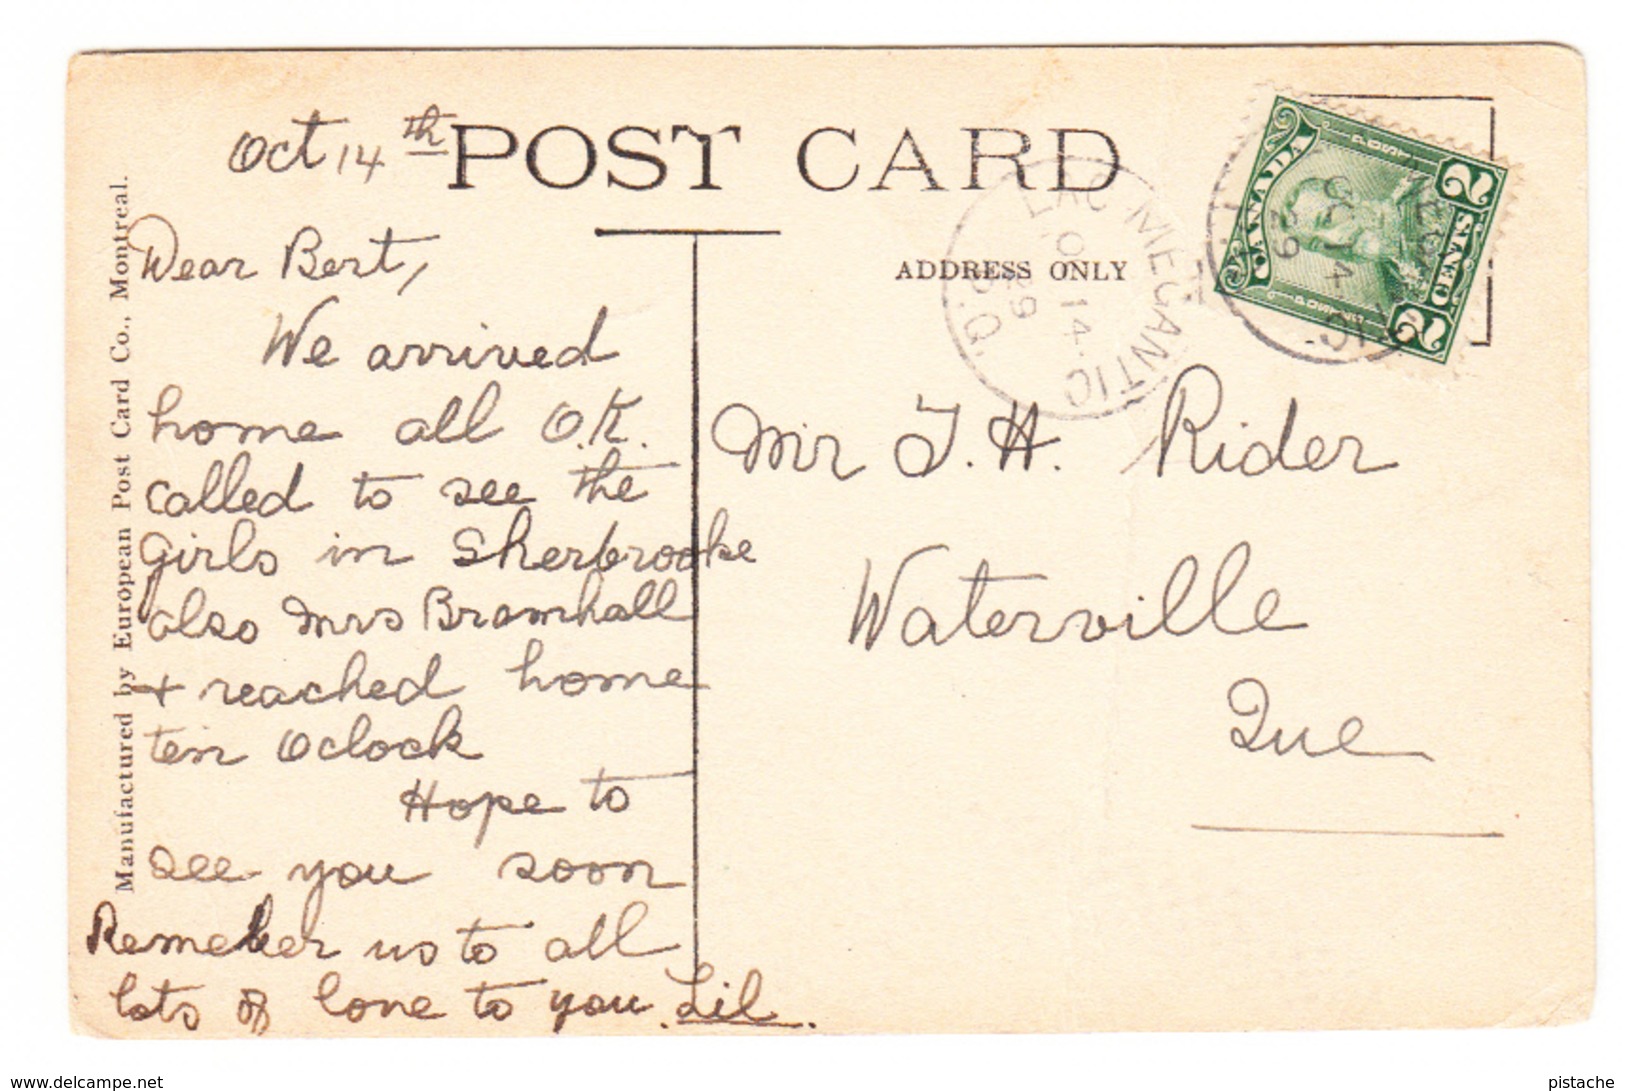 Oct 14th
POST CARD
ADDRESS ONLY
Manufactured by European Post Card Co., Montreal.
Dear Bert,
We arrived
home all O.K.
called to see the
girls in Sherbrooke
also Mrs Bramhall
+ reached home
ten Oclock
Hope to
see you soon
Remeber us to all
lots of love to you Lil.
LAC-MEGANTIC
OC 14
29
P.Q.
CANADA
POSTES POSTAGE
2 CENTS 2
OC 14
29
Mr T. H. Rider
Waterville
Que
www.delcampe.net
pistache